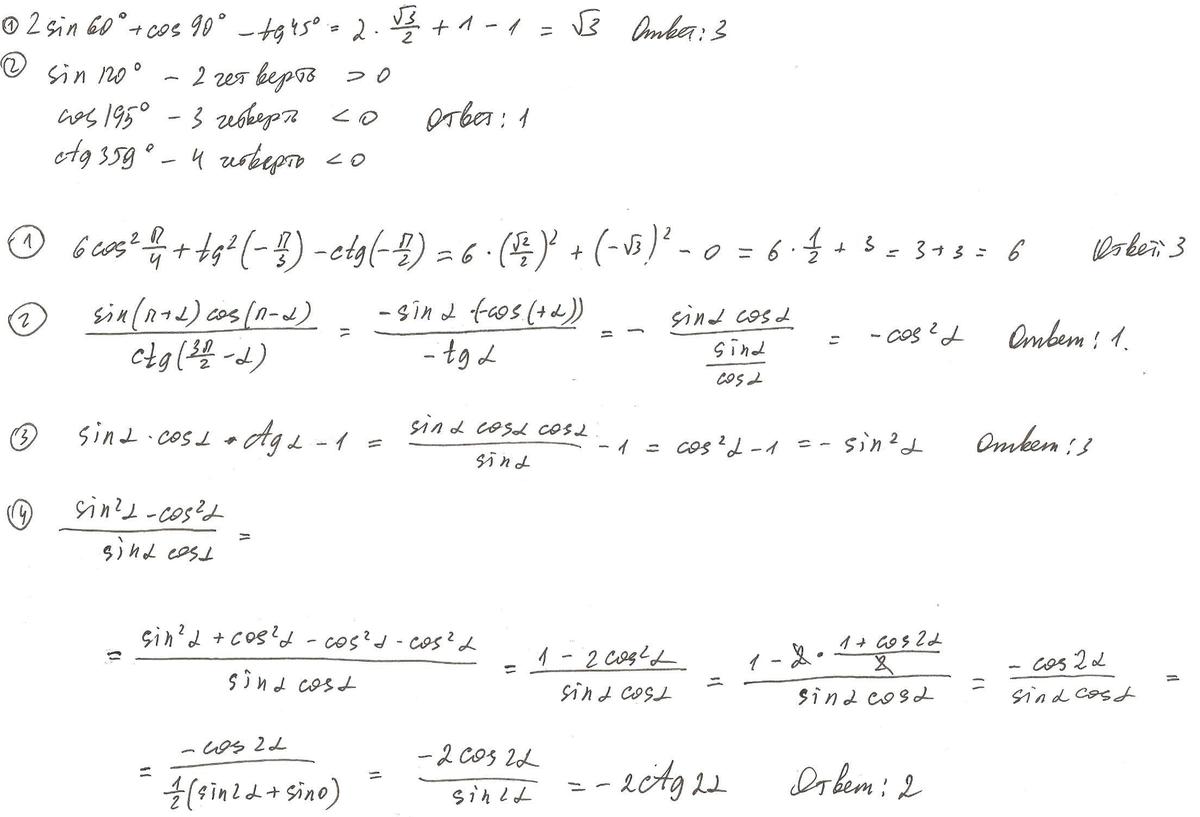 ① 2 sin 60° + cos 90° - tg 45° = 2 · √3/2 + 1 - 1 = √3 Ответ: 3
② sin 120° - 2 четверть > 0
cos 195° - 3 четверть < 0 Ответ: 1
ctg 359° - 4 четверть < 0
① 6 cos² π/4 + tg² (-π/3) - ctg (-π/2) = 6 · (√2/2)² + (-√3)² - 0 = 6 · 1/2 + 3 = 3 + 3 = 6 Ответ: 3
② sin(π+α) cos(π-α) / ctg(3π/2 - α) = -sin α · (-cos(+α)) / -tg α = - sin α cos α / (sin α / cos α) = - cos² α Ответ: 1.
③ sin α · cos α · ctg α - 1 = sin α cos α cos α / sin α - 1 = cos² α - 1 = - sin² α Ответ: 3
④ sin² α - cos² α / sin α cos α =
= sin² α + cos² α - cos² α - cos² α / sin α cos α = 1 - 2 cos² α / sin α cos α = 1 - 2 · (1 + cos 2α / 2) / sin α cos α = - cos 2α / sin α cos α =
= - cos 2α / 1/2 (sin 2α + sin 0) = -2 cos 2α / sin 2α = - 2 ctg 2α Ответ: 2